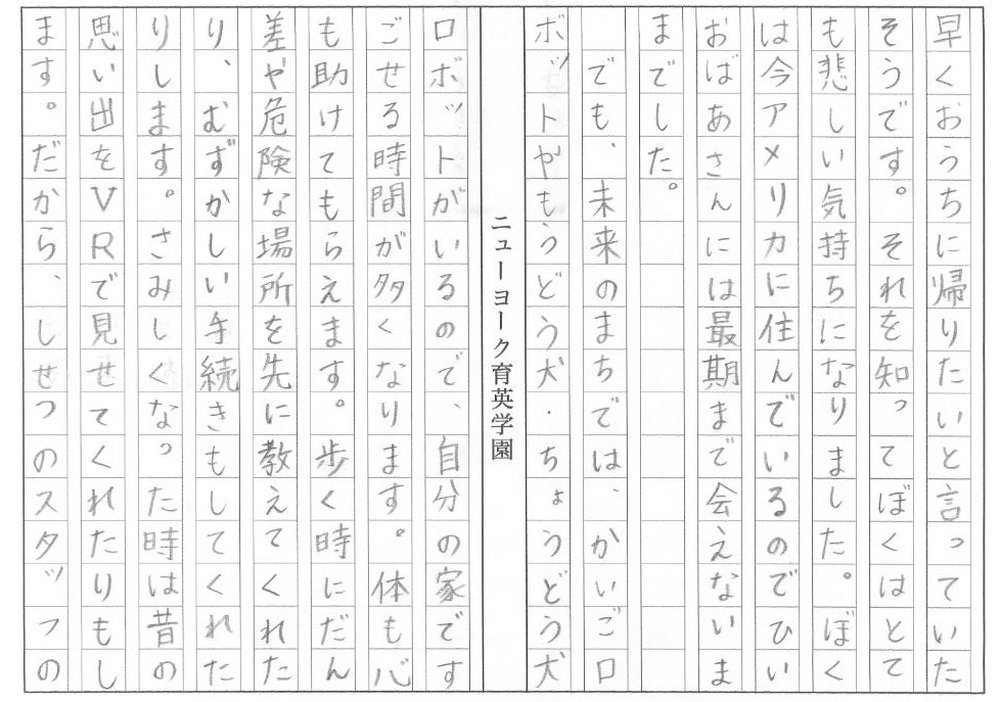 早くおうちに帰りたいと言っていた
そうです。それを知ってぼくはとて
も悲しい気持ちになりました。ぼく
は今アメリカに住んでいるのでひい
おばあさんには最期まで会えないま
までした。
でも、未来のまちでは、かいごロ
ボットやもうどう犬・ちょうどう犬
ニューヨーク育英学園
ロボットがいるので、自分の家です
ごせる時間が多くなります。体も心
も助けてもらえます。歩く時にだん
差や危険な場所を先に教えてくれた
り、むずかしい手続きもしてくれた
りします。さみしくなった時は昔の
思い出をVRで見せてくれたりもし
ます。だから、しせつのスタッフの